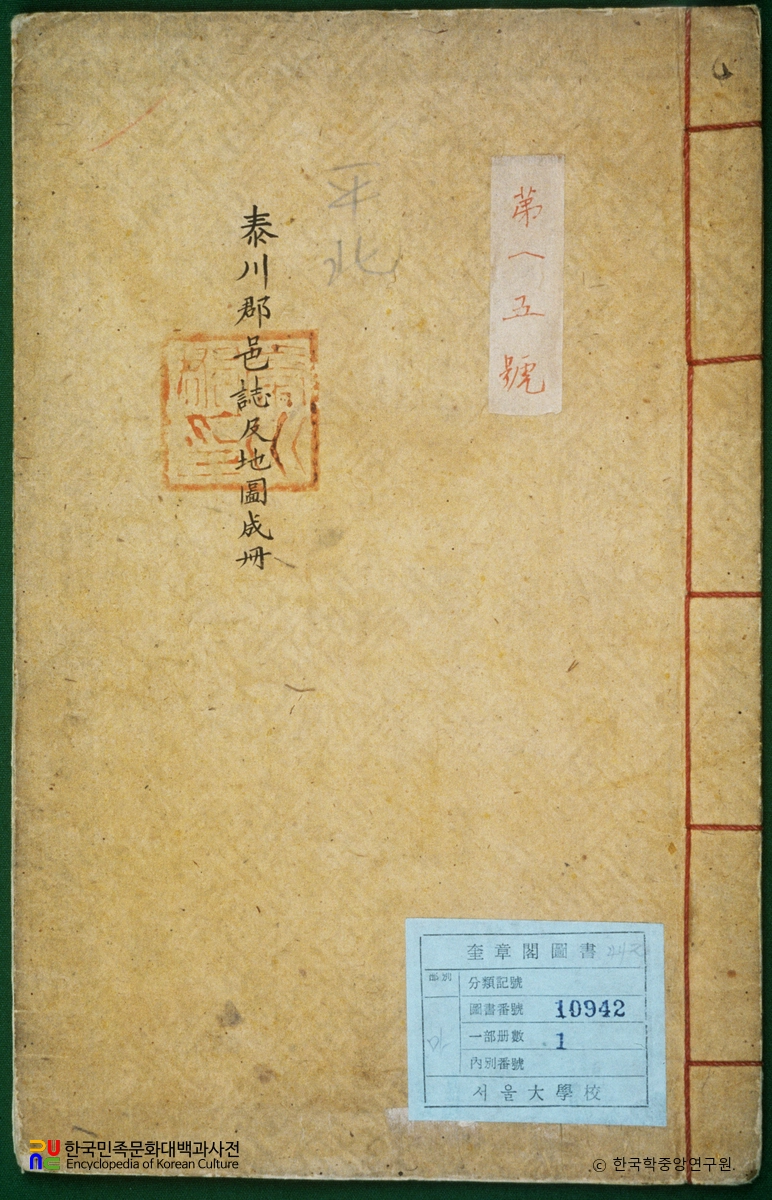 第一五號
平北
泰川郡邑誌及地圖成冊
奎章閣圖書
部別
分類記號
圖書番號 10942
一部册數 1
內別番號
서울大學校
한국민족문화대백과사전
Encyclopedia of Korean Culture
© 한국학중앙연구원